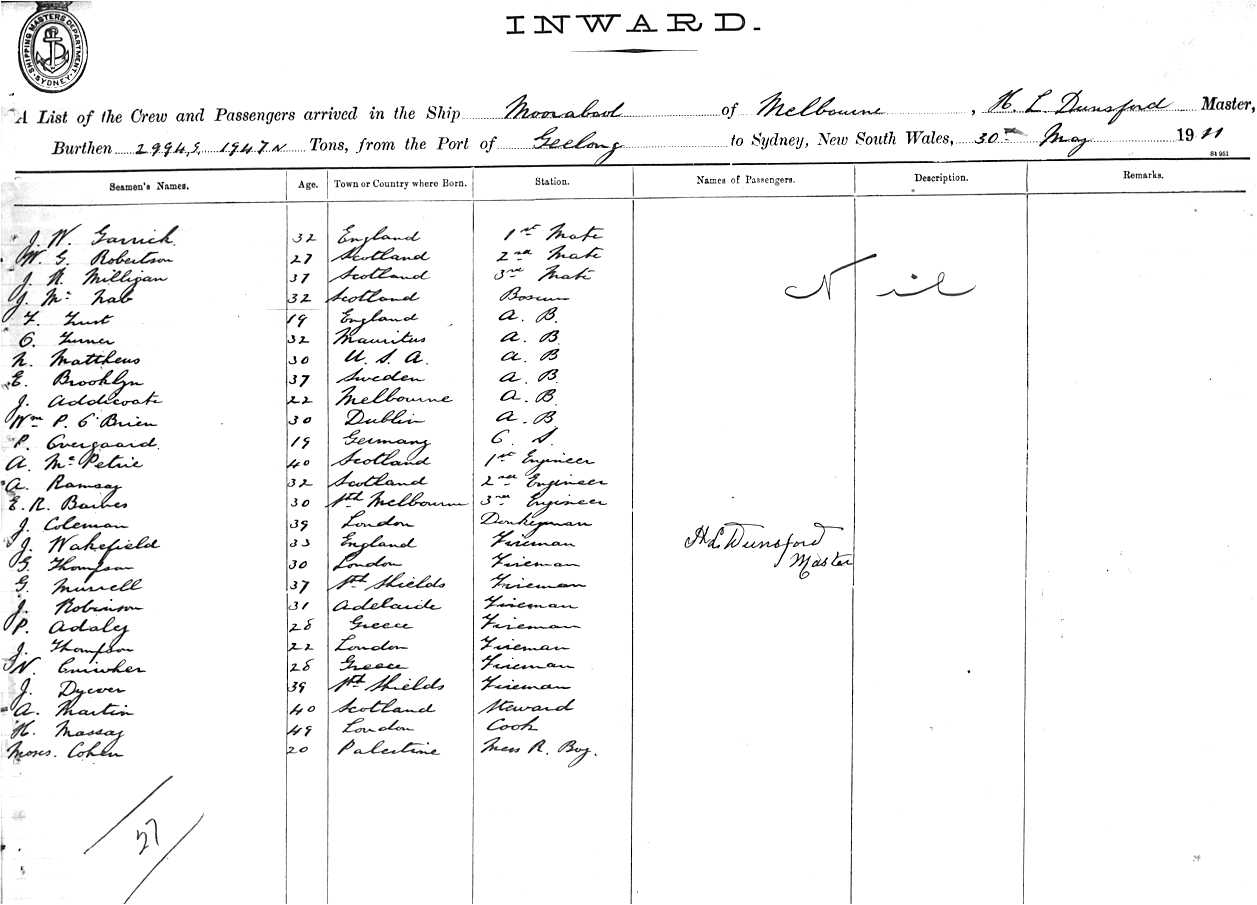 SHIPPING MASTERS DEPARTMENT SYDNEY
INWARD.
A List of the Crew and Passengers arrived in the Ship Moorabool of Melbourne, H. L. Dunsford Master,
Burthen 2994 G, 1947 N Tons, from the Port of Geelong to Sydney, New South Wales, 30th May 1911
St 951
Seamen's Names. Age. Town or Country where Born. Station. Names of Passengers. Description. Remarks.
J. W. Garrick 32 England 1st Mate
W. G. Robertson 27 Scotland 2nd Mate
J. N. Milligan 37 Scotland 3rd Mate Nil
J. Mc Nab 32 Scotland Bosun
F. Trust 19 England A. B.
C. Turner 32 Mauritus A. B
N. Matthews 30 U. S. A. A. B
E. Brooklyn 37 Sweden A. B
J. Addicoate 22 Melbourne A. B
Wm P. O'Brien 30 Dublin A. B
P. Overgaard 19 Germany O. S.
A. Mc Petrie 40 Scotland 1st Engineer
A. Ramsay 32 Scotland 2nd Engineer
E. R. Barnes 30 Nth Melbourne 3rd Engineer
J. Coleman 39 London Donkeyman
J. Wakefield 33 England Fireman H L Dunsford
G. Thompson 30 London Fireman Master
G. Murrell 37 Nth Shields Fireman
J. Robinson 31 Adelaide Fireman
P. Adaley 28 Greece Fireman
J. Thompson 22 London Fireman
N. 28 Greece Fireman
J. 39 Nth Shields Fireman
A. Martin 40 Scotland Steward
H. Massay 49 London Cook
Moses. Cohen 20 Palestine Mess R. Boy.
27